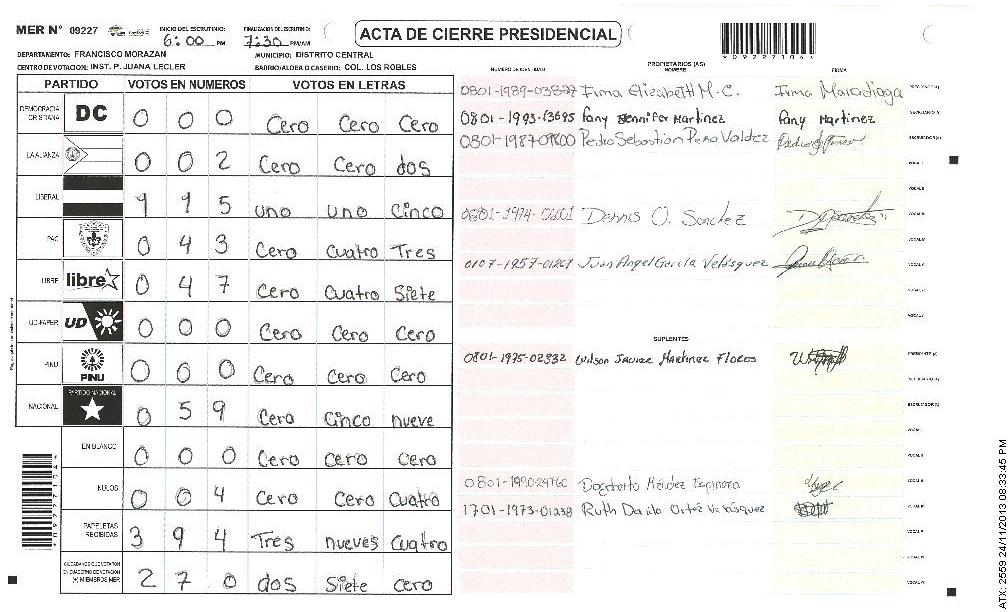 MER N° 09227 INICIO DEL ESCRUTINIO: 6:00 PM FINALIZACION DEL ESCRUTINIO: 7:30 PM/AM
ACTA DE CIERRE PRESIDENCIAL
*09227104*
DEPARTAMENTO: FRANCISCO MORAZAN MUNICIPIO: DISTRITO CENTRAL
CENTRO DE VOTACION: INST. P. JUANA LECLER BARRIO/ALDEA O CASERIO: COL. LOS ROBLES
PARTIDO VOTOS EN NUMEROS VOTOS EN LETRAS
DEMOCRACIA CRISTIANA DC 0 0 0 Cero Cero Cero
LA ALIANZA 0 0 2 Cero Cero dos
LIBERAL 1 1 5 uno uno Cinco
PAC 0 4 3 Cero Cuatro Tres
LIBRE libre 0 4 7 Cero Cuatro Siete
UD-FAPER UD 0 0 0 Cero Cero Cero
PINU PINU 0 0 0 Cero Cero Cero
NACIONAL PARTIDO NACIONAL 0 5 9 Cero Cinco nueve
EN BLANCO 0 0 0 Cero Cero Cero
NULOS 0 0 4 Cero Cero Cuatro
PAPELETAS RECIBIDAS 3 9 4 Tres nueves Cuatro
CIUDADANOS QUE VOTARON EN CUADERNO DE VOTACION (+) MIEMBROS MER 2 7 0 dos Siete cero
PROPIETARIOS (AS)
NUMERO DE IDENTIDAD NOMBRE FIRMA
0801-1989-03827 Irma Elizabeth M.C. Irma Maradiaga PRESIDENTE (A)
0801-1993-13695 Fany Jennifer Martinez Fany Martinez SECRETARIO (A)
0801-1987-09800 Pedro Sebastian Peña Valdez ESCRUTADOR (A)
VOCAL I
VOCAL II
0801-1974-0601 Dennis O. Sanchez VOCAL III
VOCAL IV
0107-1957-01267 Juan Angel Garcia Velásquez VOCAL V
VOCAL VI
VOCAL VII
SUPLENTES
0801-1975-02332 Wilson Javier Martinez Flores PRESIDENTE (A)
SECRETARIO (A)
ESCRUTADOR (A)
VOCAL I
VOCAL II
0801-1990-24760 Dagoberto Méndez Espinoza VOCAL III
1701-1973-01238 Ruth Danilo Ortez Velásquez VOCAL IV
VOCAL V
VOCAL VI
VOCAL VII
*09227104*
ATX: 2559 24/11/2013 08:33:45 PM